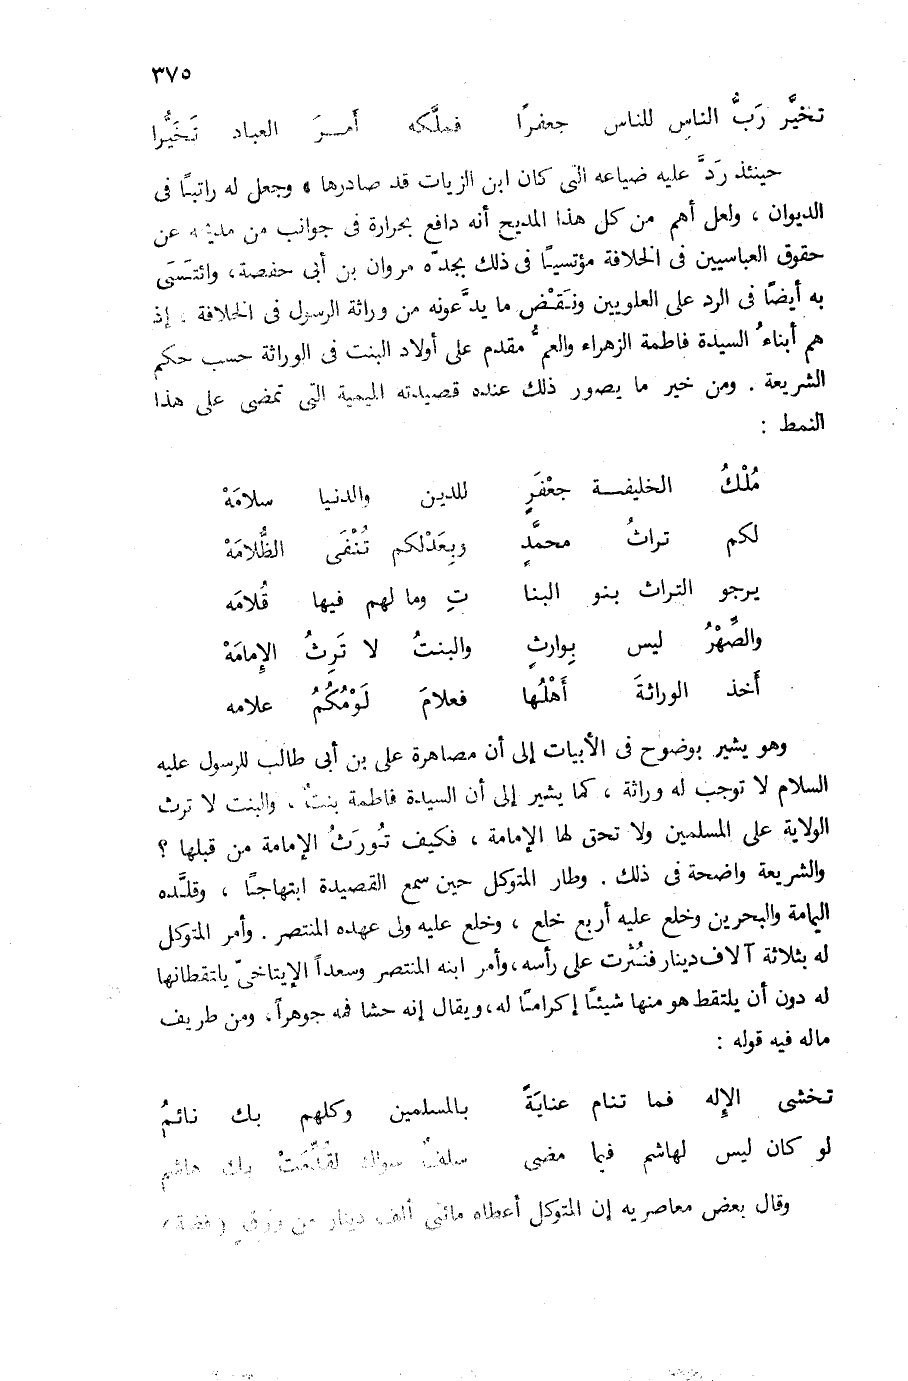 ٣٧٥
تخيَّر رَبُّ الناسِ للناس جعفرًا فملَّكه أمــرَ العباد تَخَيُّرا
حينئذ ردَّ عليه ضياعه التى كان ابن الزيات قد صادرها ، وجعل له راتبًا فى
الديوان ، ولعل أهم من كل هذا المديح أنه دافع بحرارة فى جوانب من مديحه عن
حقوق العباسيين فى الخلافة مؤتسيًا فى ذلك بجدّه مروان بن أبى حفصة، وائتسَى
به أيضًا فى الرد على العلويين ونَقْض ما يدَّعونه من وراثة الرسول فى الخلافة ، إذ
هم أبناءُ السيدة فاطمة الزهراء والعمُّ مقدم على أولاد البنت فى الوراثة حسب حكم
الشريعة . ومن خير ما يصور ذلك عنده قصيدته الميمية التى تمضى على هذا
النمط :
مُلْكُ الخليفــة جعْفَرٍ للدين والدنيا سلامَهْ
لكم تراثُ محمَّدٍ وبِعَدْلكم تُنْفَى الظُّلامَهْ
يرجو التراث بنو البنا تِ وما لهم فيها قُلامَه
والصِّهْرُ ليس بِوارثٍ والبنتُ لا تَرِثُ الإِمامَهْ
أَخذ الوراثةَ أَهْلُها فعلامَ لَوْمُكُمُ علامه
وهو يشير بوضوح فى الأبيات إلى أن مصاهرة على بن أبى طالب للرسول عليه
السلام لا توجب له وراثة ، كما يشير إلى أن السيدة فاطمة بنتٌ ، والبنت لا ترث
الولاية على المسلمين ولا تحق لها الإمامة ، فكيف تُورَثُ الإمامة من قبلها ؟
والشريعة واضحة فى ذلك . وطار المتوكل حين سمع القصيدة ابتهاجًا ، وقلَّده
اليمامة والبحرين وخلع عليه أربع خلع ، وخلع عليه ولى عهده المنتصر . وأمر المتوكل
له بثلاثة آلاف دينار فنُثرت على رأسه، وأمر ابنه المنتصر وسعداً الإيتاخىّ يلتقطانها
له دون أن يلتقط هو منها شيئًا إكرامًا له، ويقال إنه حشا فمه جوهراً، ومن طريف
ماله فيه قوله :
تخشى الإِله فما تنام عنايَةً بالمسلمين وكلهم بك نائمُ
لو كان ليس لهاشم فيما مضى سلفٌ سواك لقُدِّمَتْ بك هاشم
وقال بعض معاصريه إن المتوكل أعطاه مائتى ألف دينار من ورِقٍ (فضة)